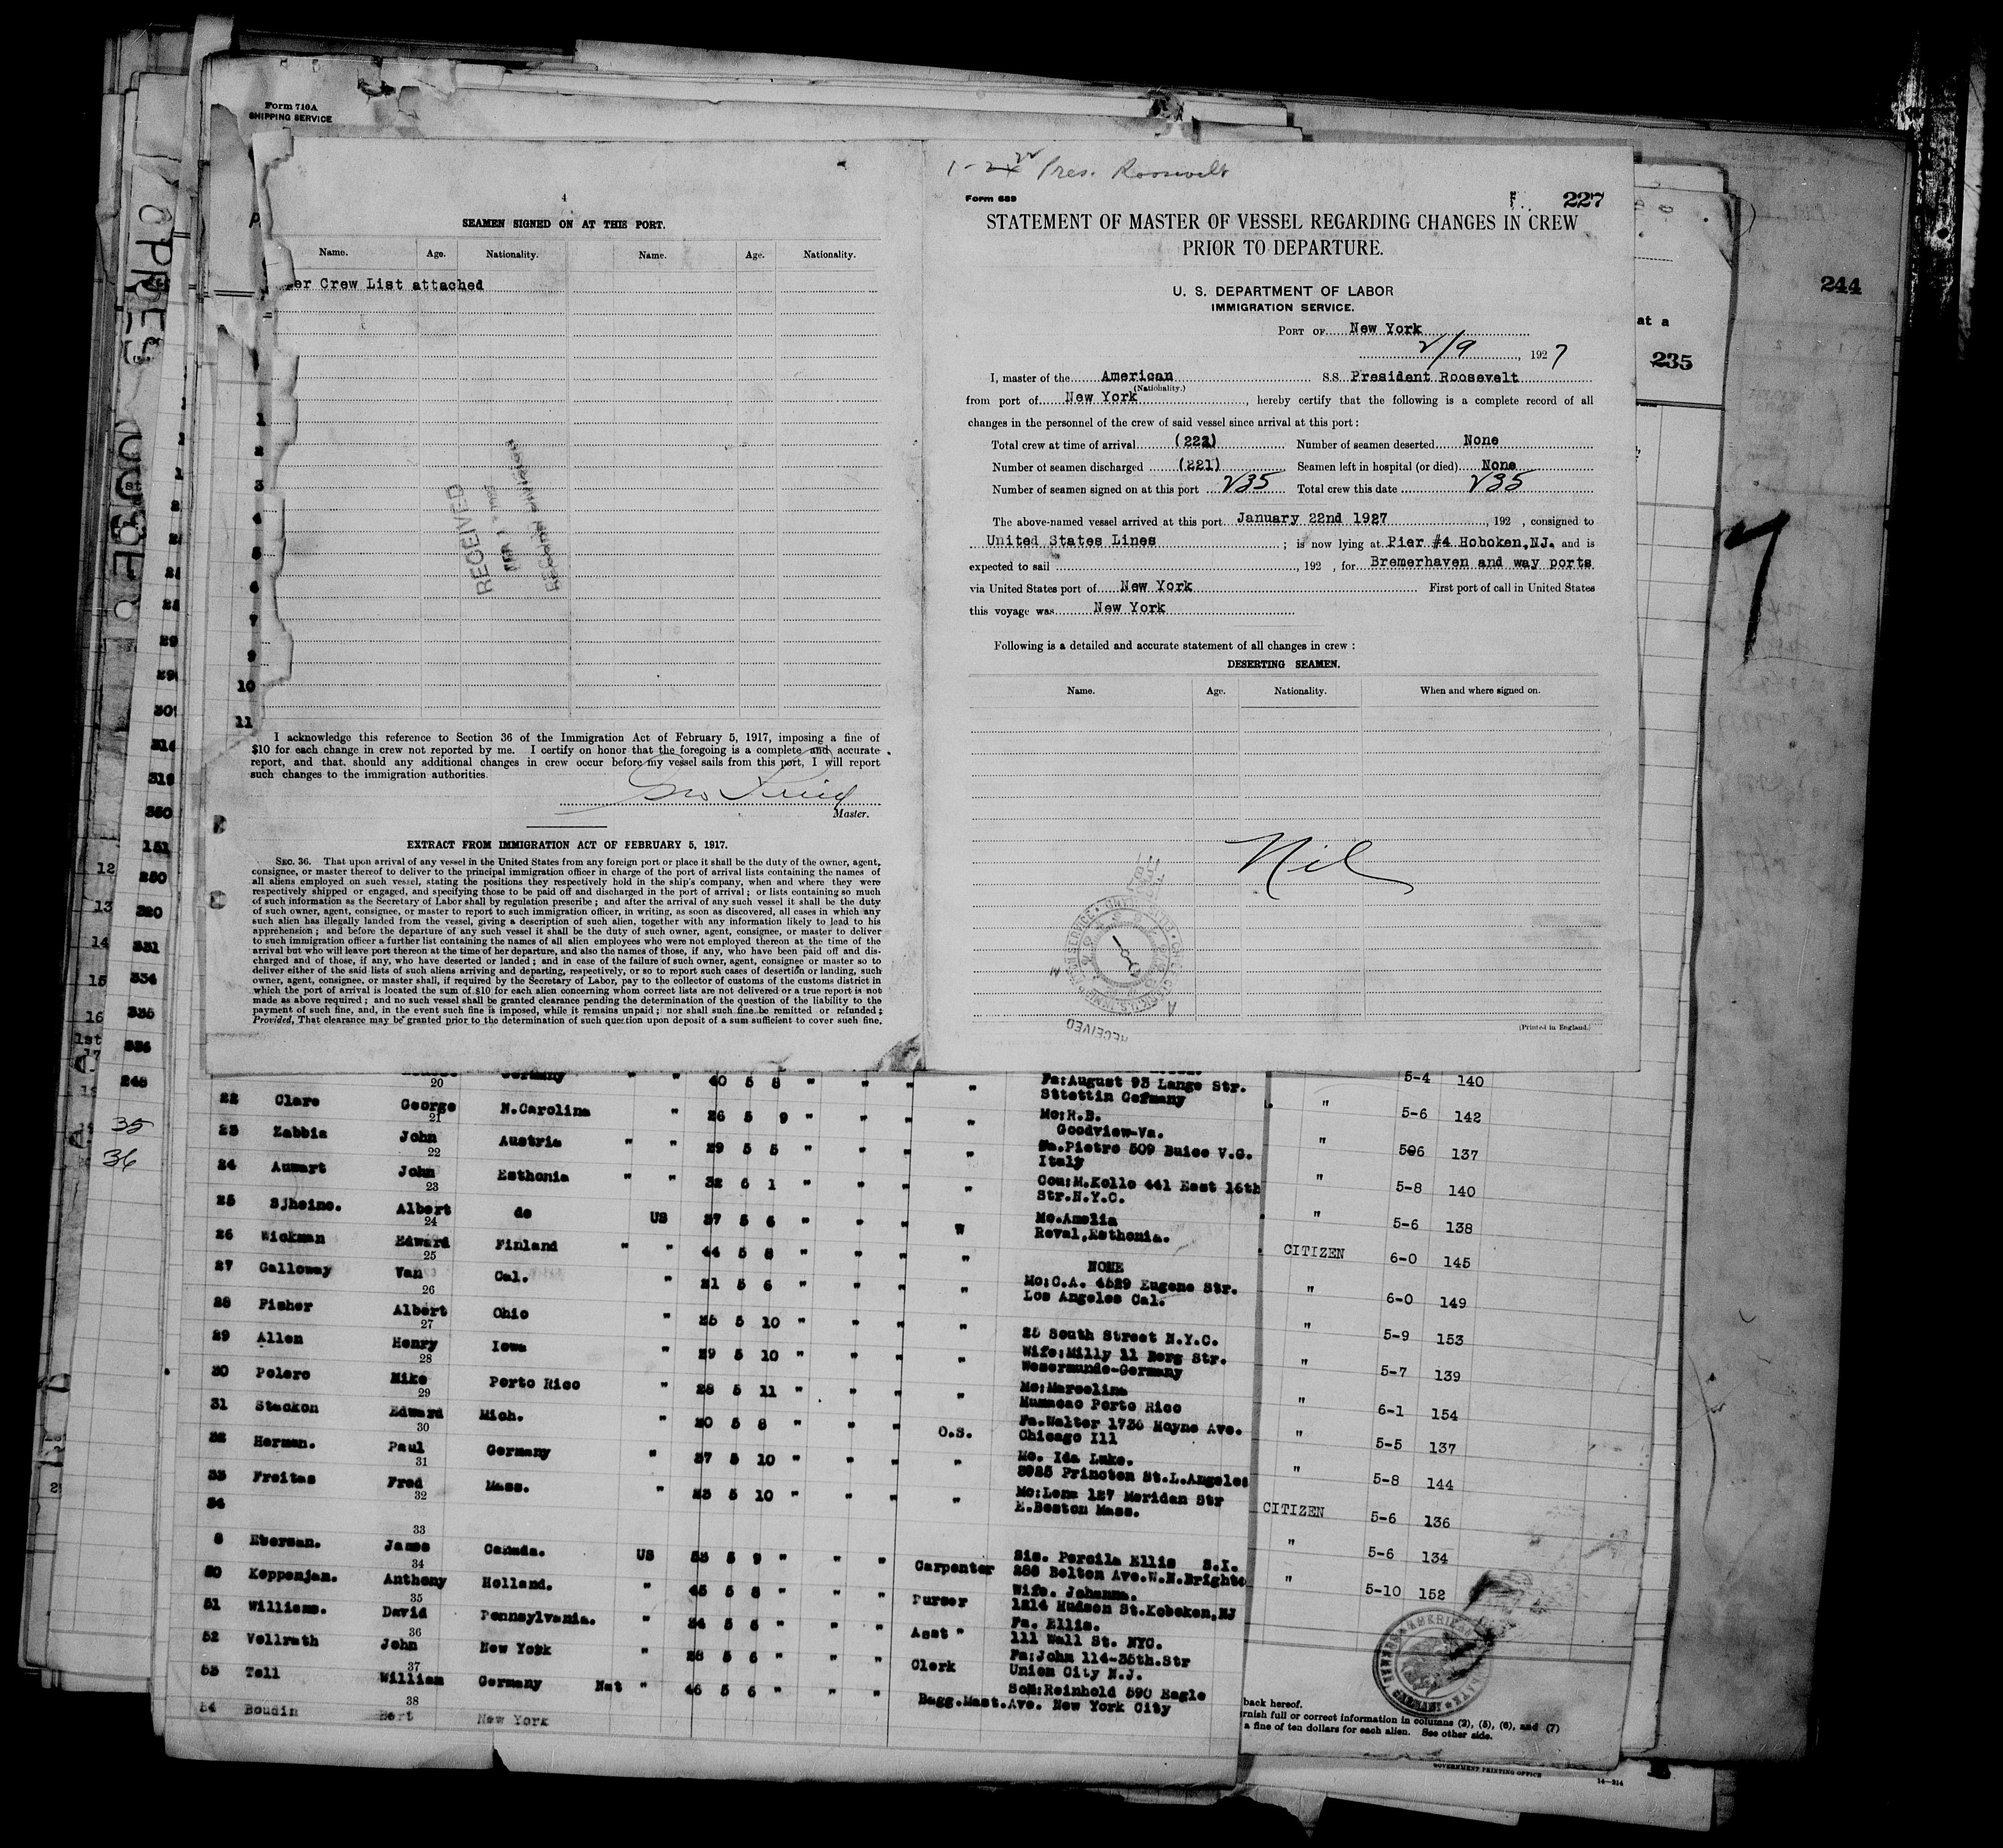 Form 710A
SHIPPING SERVICE
4
SEAMEN SIGNED ON AT THIS PORT.
Name. Age. Nationality. Name. Age. Nationality.
er Crew List attached
RECEIVED
I acknowledge this reference to Section 36 of the Immigration Act of February 5, 1917, imposing a fine of
$10 for each change in crew not reported by me. I certify on honor that the foregoing is a complete and accurate
report, and that should any additional changes in crew occur before my vessel sails from this port, I will report
such changes to the immigration authorities.
Master.
EXTRACT FROM IMMIGRATION ACT OF FEBRUARY 5, 1917.
SEC. 36. That upon arrival of any vessel in the United States from any foreign port or place it shall be the duty of the owner, agent,
consignee, or master thereof to deliver to the principal immigration officer in charge of the port of arrival lists containing the names of
all aliens employed on such vessel, stating the positions they respectively hold in the ship's company, when and where they were
respectively shipped or engaged, and specifying those to be paid off and discharged in the port of arrival; or lists containing so much
of such information as the Secretary of Labor shall by regulation prescribe; and after the arrival of any such vessel it shall be the duty
of such owner, agent, consignee, or master to report to such immigration officer, in writing, as soon as discovered, all cases in which any
such alien has illegally landed from the vessel, giving a description of such alien, together with any information likely to lead to his
apprehension; and before the departure of any such vessel it shall be the duty of such owner, agent, consignee, or master to deliver
to such immigration officer a further list containing the names of all alien employees who were not employed thereon at the time of the
arrival but who will leave port thereon at the time of her departure, and also the names of those, if any, who have been paid off and dis-
charged and of those, if any, who have deserted or landed; and in case of the failure of such owner, agent, consignee or master so to
deliver either of the said lists of such aliens arriving and departing, respectively, or so to report such cases of desertion or landing, such
owner, agent, consignee, or master, shall, if required by the Secretary of Labor, pay to the collector of customs of the customs district in
which the port of arrival is located the sum of $10 for each alien concerning whom correct lists are not delivered or a true report is not
made as above required; and no such vessel shall be granted clearance pending the determination of the question of the liability to the
payment of such fine, and, in the event such fine is imposed, while it remains unpaid; nor shall such fine be remitted or refunded;
Provided, That clearance may be granted prior to the determination of such question upon deposit of a sum sufficient to cover such fine.
Pres. Roosevelt
Form 689
227
STATEMENT OF MASTER OF VESSEL REGARDING CHANGES IN CREW
PRIOR TO DEPARTURE.
U. S. DEPARTMENT OF LABOR
IMMIGRATION SERVICE.
PORT OF New York
2/9, 1927
I, master of the American S.S. President Roosevelt
(Nationality.)
from port of New York, hereby certify that the following is a complete record of all
changes in the personnel of the crew of said vessel since arrival at this port:
Total crew at time of arrival (222) Number of seamen deserted None
Number of seamen discharged (221) Seamen left in hospital (or died) None
Number of seamen signed on at this port 235 Total crew this date 235
The above-named vessel arrived at this port January 22nd 1927, 192 , consigned to
United States Lines ; is now lying at Pier #4 Hoboken,NJ. and is
expected to sail , 192 , for Bremerhaven and way ports
via United States port of New York First port of call in United States
this voyage was New York
Following is a detailed and accurate statement of all changes in crew:
DESERTING SEAMEN.
Name. Age. Nationality. When and where signed on.
Nil
RECEIVED
(Printed in England.)
244
at a
235
20 Germany " " 40 5 8 " " " " Fa:August 93 Lange Str. 5-4 140
Stettin Germany
22 Clare George N.Carolina " 26 5 9 " " " " Mo:R.B. " 5-6 142
21 Goodview-Va.
23 Zabbia John Austria " " 29 5 5 " " " " Pietro 509 Buice V.G. " 506 137
22 Italy
24 Aumart John Esthonia " " 32 6 1 " " " " Cou:M.Kello 441 East 16th " 5-8 140
23 Str.N.Y.C.
25 Sjheino. Albert do US 37 5 6 " " " W Mo.Amelia " 5-6 138
24 Reval,Esthonia.
26 Wickman Edward Finland " " 44 5 8 " " " " NONE CITIZEN 6-0 145
25
27 Galloway Van Cal. " 21 5 6 " " " " Mo:C.A. 4529 Eugene Str. " 6-0 149
26 Los Angeles Cal.
28 Fisher Albert Ohio " 25 5 10 " " " " 25 South Street N.Y.C. " 5-9 153
27
29 Allen Henry Iowa " 29 5 10 " " " " Wife:Milly 11 Berg Str. " 5-7 139
28 Wesermunde-Germany
30 Polero Mike Porto Rico " 28 5 11 " " " " Mo:Marcelina " 6-1 154
29 Humacao Porto Rico
31 Stackon Edward Mich. " 20 5 8 " " " O.S. Fa.Walter 1736 Mayne Ave. " 5-5 137
30 Chicago Ill
32 Herman. Paul Germany " 37 5 10 " " " " Mo. Ida Luke. " 5-8 144
31 3925 Princton St.L.Angeles
33 Freitas Fred Mass. " 23 5 10 " " " " Mo:Lena 127 Meridan Str CITIZEN 5-6 136
32 E.Boston Mass.
34 " 5-6 134
33
8 Eberman. James Canada. US 53 5 9 " " " Carpenter Sis. Percila Ellis S.I. " 5-10 152
34 288 Belton Ave.W.N.Brighto
50 Koppenjan. Anthony Holland. " 45 5 8 " " " Purser Wife. Johanna.
35 1214 Hudson St.Hoboken,NJ
51 Williams. David Pennsylvania. " 34 5 6 " " " Asst " Fa. Ellis.
36 111 Wall St. NYC.
52 Vollrath John New York " 28 5 6 " " " Clerk Fa:John 114-35th.Str
37 Union City N.J.
53 Tell William Germany Nat " 46 5 6 " " " Bagg.Mast. Son:Reinhold 590 Eagle
38 Ave. New York City
54 Boudin Bert New York
35
36
back hereof.
rnish full or correct information in columns (2), (5), (6), and (7)
a fine of ten dollars for each alien. See other side.
GOVERNMENT PRINTING OFFICE
14—314